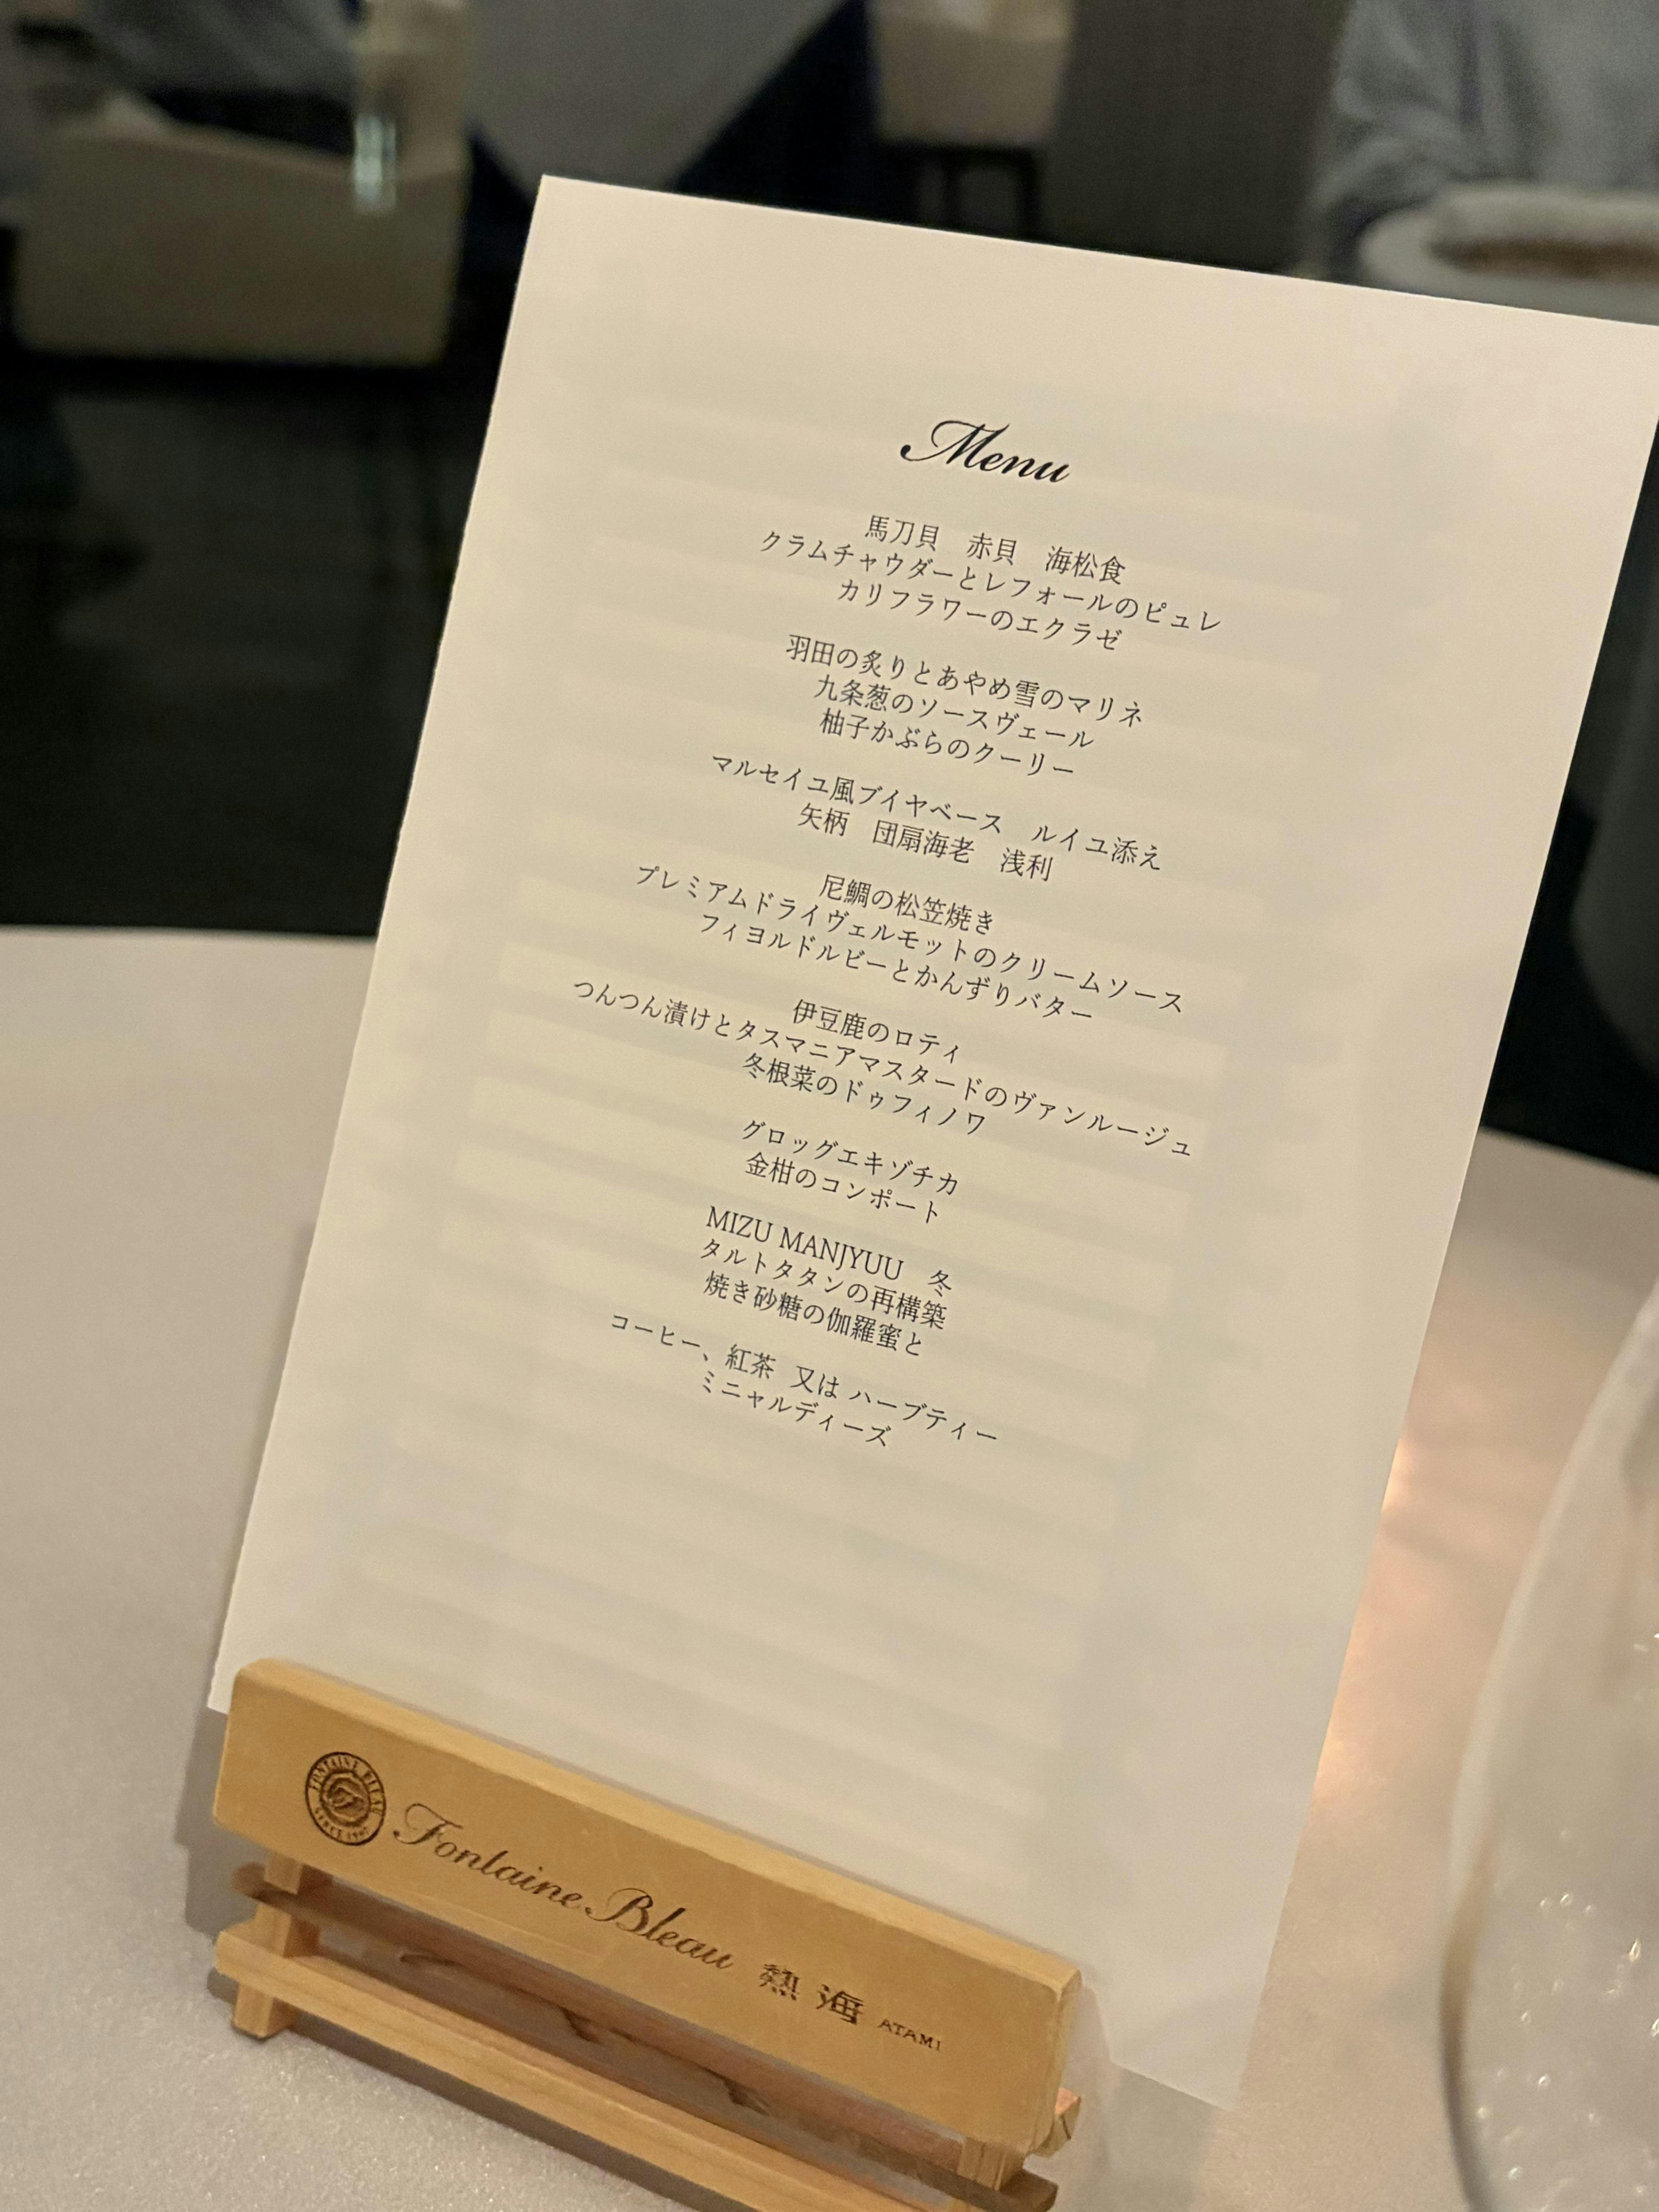 Menu
馬刀貝　赤貝　海松食
クラムチャウダーとレフォールのピュレ
カリフラワーのエクラゼ
羽田の炙りとあやめ雪のマリネ
九条葱のソースヴェール
柚子かぶらのクーリー
マルセイユ風ブイヤベース　ルイユ添え
矢柄　団扇海老　浅利
尼鯛の松笠焼き
プレミアムドライヴェルモットのクリームソース
フィヨルドルビーとかんずりバター
伊豆鹿のロティ
つんつん漬けとタスマニアマスタードのヴァンルージュ
冬根菜のドゥフィノワ
グロッグエキゾチカ
金柑のコンポート
MIZU MANJYUU　冬
タルトタタンの再構築
焼き砂糖の伽羅蜜と
コーヒー、紅茶　又は ハーブティー
ミニャルディーズ
FONTAINE BLEAU
SINCE
Fontaine Bleau 熱海 ATAMI